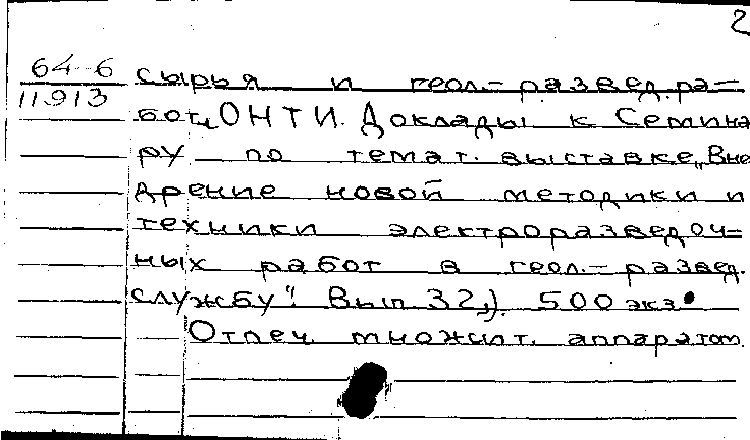 2
64-6
11913
сырья и геол.-развед. ра-
бот. ОНТИ. Доклады к Семина
ру по темат. выставке „Вне
дрение новой методики и
техники электроразведоч-
ных работ в геол.-развед.
службу". Вып 32,). 500 экз.
Отпеч. множит. аппаратом.